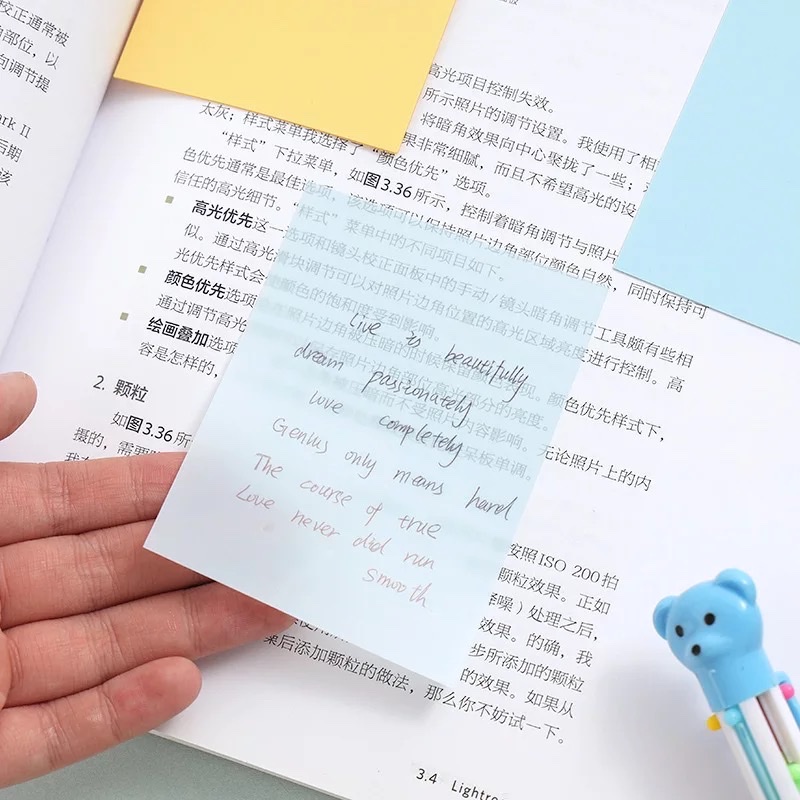 校正通常被
部位，以
向调节提
rk II
后期
该
高光项目控制失效。
所示照片的调节设置。我使用了相
将暗角效果向中心聚拢了一些；
太灰；样式菜单我选择了“颜色优先”选项。
果非常细腻，而且不希望高光的设
“样式”下拉菜单，如图3.36所示，控制着暗角调节与照片
色优先通常是最佳选项，该选项可以保持照片边角部位颜色自然，同时保持可
信任的高光细节。“样式”菜单中的不同项目如下。
高光优先这一选项和镜头校正面板中的手动/镜头暗角调节工具颇有些相
似。通过高光滑块调节可以对照片边角位置的高光区域亮度进行控制。高
光优先样式会
的饱和度受到影响。
颜色优先选项
颜色优先样式下，
通过调节高光
部分的亮度。
绘画叠加选项
而不受照片内容影响。无论照片上的内
容是怎样的，
呆板单调。
Live is beautifully
dream passionately
love completely
Genius only means hard
The course of true
Love never did run
smooth
2. 颗粒
如图3.36所
摄的，需要
按照ISO 200拍
颗粒效果。正如
噪）处理之后，
效果。的确，我
步所添加的颗粒
后添加颗粒的做法，那么你不妨试一下。
的效果。如果从
3.4 Lightro